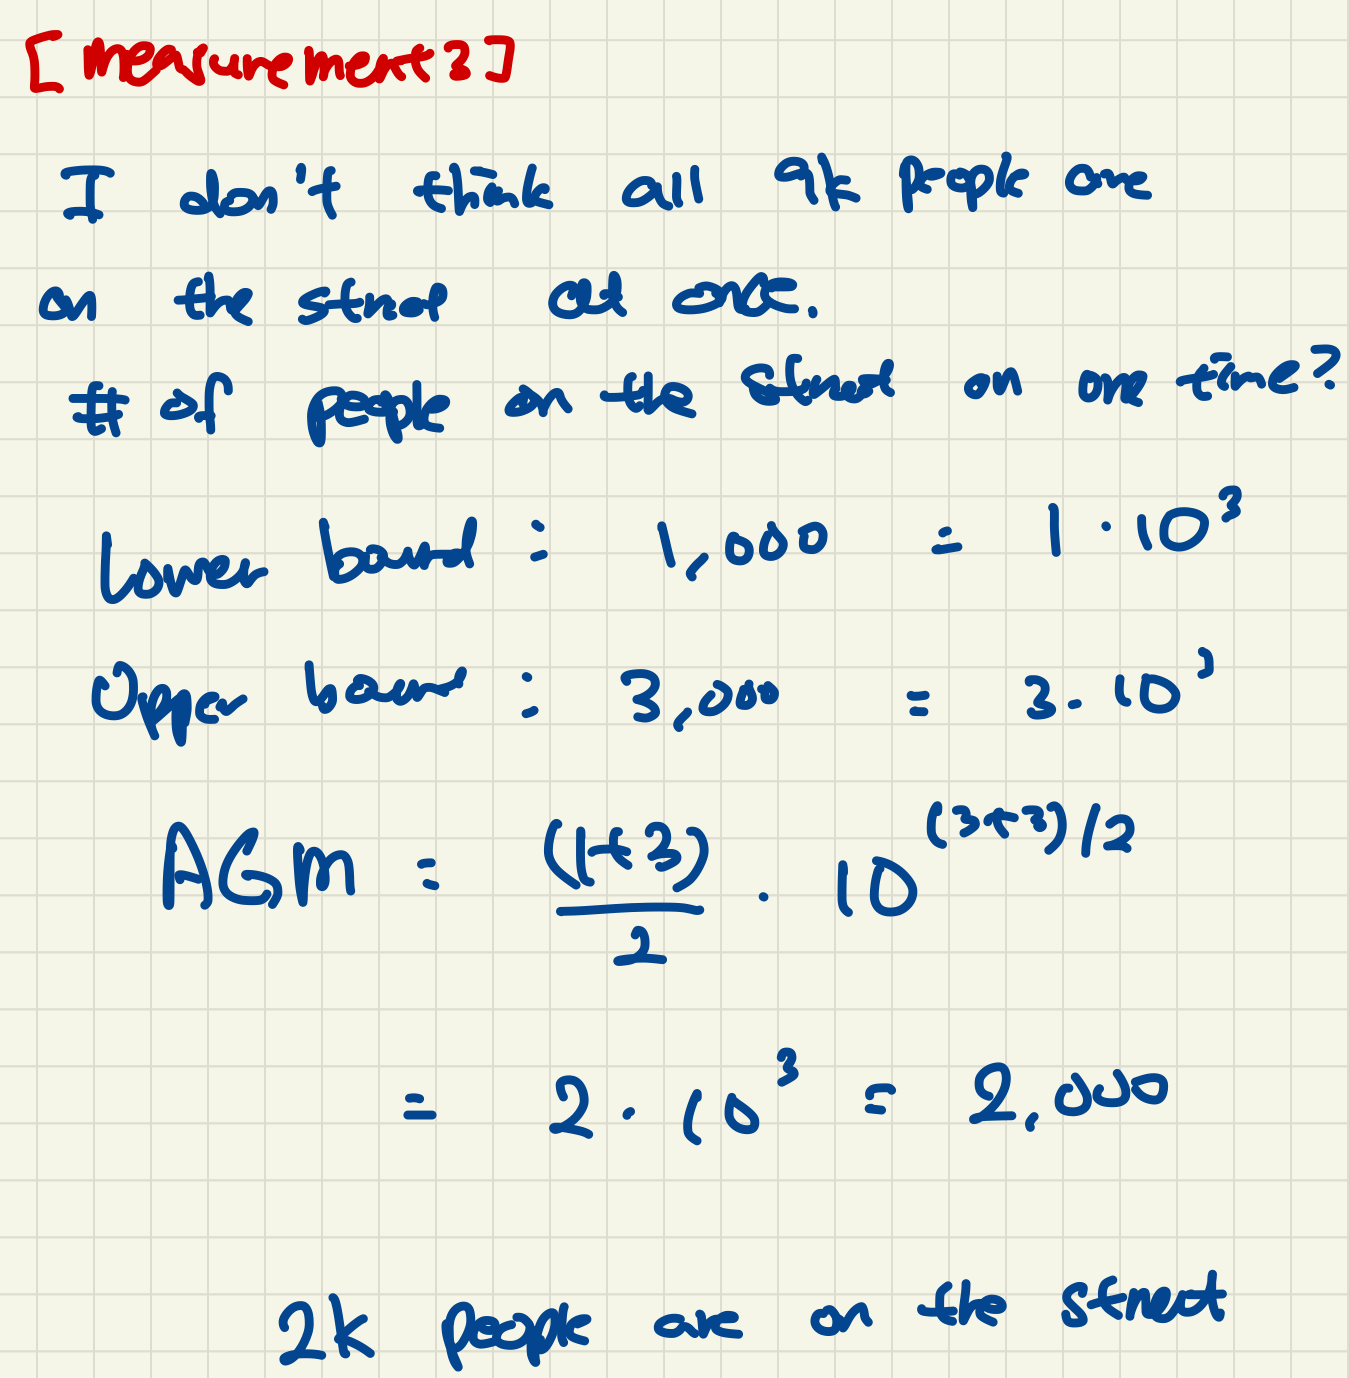 [measurement 3]
I don't think all 9k people are
on the street at once.
# of people on the street on one time?
Lower bound : 1,000 = 1 · 10³
Upper bound : 3,000 = 3 · 10³
AGM = (1+3)/2 · 10^(3+3)/2
= 2 · 10³ = 2,000
2k people are on the street